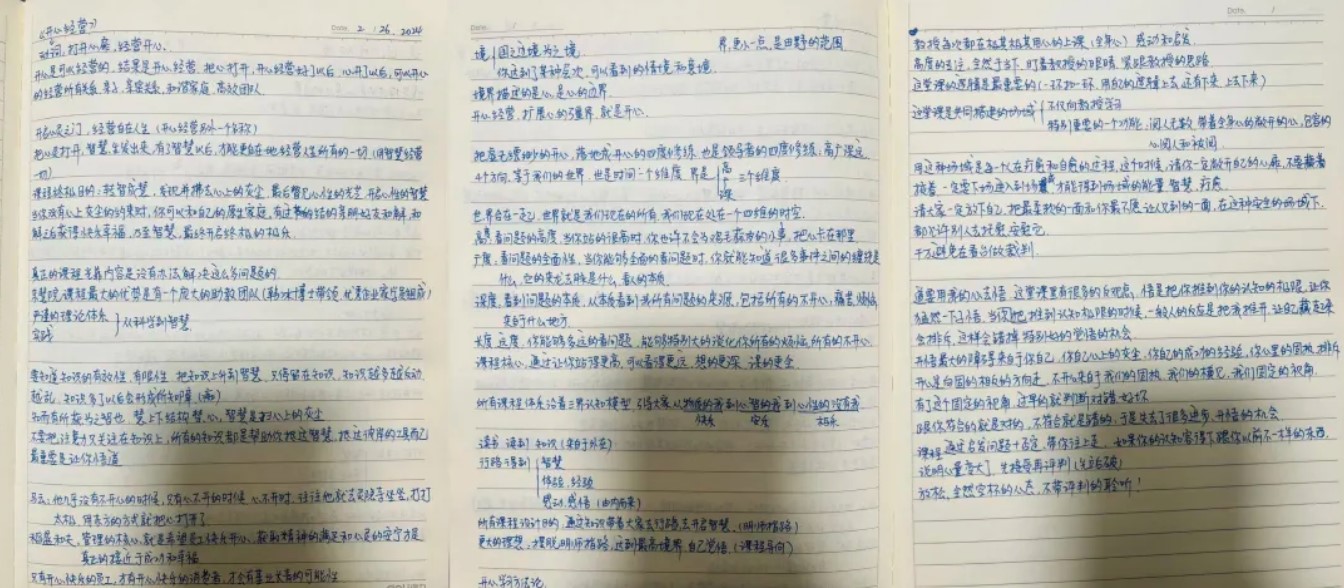 《开心经营》
Date. 2 / 26. 2024
动词，打开心扉，经营开心。
开心是可以经营的，结果是开心经营，把心打开，开心经营好了以后，心开了以后，可以开心
的经营所有关系，亲子，亲密关系，和谐家庭，高效团队
开启心灵之门，经营自在人生（开心经营另外一个名称）
把心灵打开，智慧生发出来，有了智慧以后，才能更自在地经营人生所有的一切，（用智慧经营
一切）
课程终极目的：转智成慧，发现并拂去心上的灰尘，最后看见心性的光芒，开启心性的智慧
当你没有心上灰尘的约束时，你可以和自己的原生家庭，有过的结的亲朋好友和解，和
解之后获得快乐幸福，乃至智慧，最终开启终极的极乐
真正的课程光靠内容是没有办法解决这么多问题的
课程最大的优势是有一个庞大的助教团队（
严谨的理论体系
实践
从科学到智慧
要知道知识的有效性，有限性，把知识上升到智慧，只停留在知识，知识越多越反动
越乱，知识多了以后会形成所知障（痛）
知而有所获为之智也，慧上下结构，慧，心，智慧是扫心上的灰尘
不要把注意力只关注在知识上，所有的知识都是帮助你抵达智慧，抵达彼岸的工具而已
最重要是让你悟道
马云：他几乎没有不开心的时候，只有心不开的时候，心不开时，往往他就去灵隐寺坐坐，打打
太极，用东方的方式就把心打开了
稻盛和夫，管理的核心，就是希望员工快乐开心，获取精神的满足和心灵的安宁才是
真正的接近于成功和幸福
只有开心快乐的员工，才有开心快乐的消费者，才会有基业长青的可能性
Date.
境｛国之边境为之境
界，更小一点，是田野的范围
你达到了某种层次，可以看到的情境和意境
境界描述的是心，是心的边界
开心经营，扩展心的疆界，就是开心
把虚无缥缈的开心，落地成开心的四度修炼，也是领导者的四度修炼，高广深远
4个方向，等于我们的世界，世是时间一个维度，界是｛高
广
深
三个维度
世界合在一起，世界就是我们现在的所有，我们现在处在一个四维的时空
高：看问题的高度，当你站的很高时，你也许不会为鸡毛蒜皮的小事，把心卡在那里
广度，看问题的全面性，当你能够全面的看问题时，你就能知道很多事件之间的缠绕是
什么，它的来龙去脉是什么，看人的本质
深度，看到问题的本质，从本质看到我所有问题的来源，包括所有的不开心，痛苦烦恼
来自于什么地方
长度，远度，你能够多远的看问题，能够特别大的淡化你所有的烦恼，所有的不开心
课程核心，通过让你站得更高，可以看得更远，想的更深，课的更全
所有课程体系沿着三界认知模型，引领大家从物质的我到心智的我到心性的没有我
快乐 安乐 极乐
读书 读到 知识（来自于外在）
行路得到｛智慧
体验，经验
感动，感悟（由内而来）
所有课程设计目的，通过知识带着大家去行路，去开启智慧，（明师指路）
更大的理想：摆脱明师指路，达到最高境界，自己觉悟，（课程导向）
开心学习方法论
Date. /
教授每次都在极其极其用心的上课（全身心）感动和启发
高度的专注，全然于当下，盯着教授的眼睛，紧跟教授的思路
这堂课的逻辑是最重要的（一环扣一环，用我的逻辑上去，还有下来，上去下来）
这堂课是共同搭建的场域｛不仅向教授学习
特别重要的一个功能，阅人无数，带着全身心的敞开的心，包容的
心阅人和被阅
用这种场域，是每一个人在疗愈和自愈的过程，这个时候，请你一定敞开自己的心扉，不要藏着
掖着，一定要下场进入到场域，才能得到场域的能量，智慧，疗愈
请大家一定放下自己，把最柔软的一面和你最不愿让人见到的一面，在这种安全的场域下，
都允许别人去托底，安慰它
千万避免在看台做裁判
通要用我的心去悟，这堂课里有很多的反观点，悟是把你推到你的认知的极限，让你
猛然一下子悟，当你把推到认知极限的时候，一般人的反应是把我推开，让自己藏起来
会排斥，这样会错掉特别好的觉悟的机会
开悟最大的障碍来自于你自己，你自己心上的灰尘，你自己的成功的经验，你心里的固执，排斥
开心是向固的相反的方向走，不开心来自于我们的固执，我们的模式，我们固定的视角
有了这个固定的视角，过早的就判断对错好坏
跟你符合的就是对的，不符合就是错的，于是失去了很多进步，开悟的机会
课程，通过启发问题+否定，带你往上走，如果你的认知容得下跟你以前不一样的东西，
说明心量变大了，先接受再评判（先站破）
放松，全然空杯的心态，不带评判的聆听！